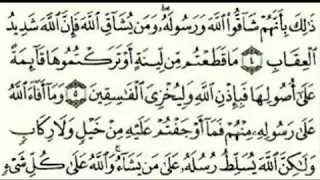 ذَٰلِكَ بِأَنَّهُمْ شَاقُّوا۟ ٱللَّهَ وَرَسُولَهُۥ ۖ وَمَن يُشَآقِّ ٱللَّهَ فَإِنَّ ٱللَّهَ شَدِيدُ
ٱلْعِقَابِ ٤ مَا قَطَعْتُم مِّن لِّينَةٍ أَوْ تَرَكْتُمُوهَا قَآئِمَةً
عَلَىٰٓ أُصُولِهَا فَبِإِذْنِ ٱللَّهِ وَلِيُخْزِىَ ٱلْفَـٰسِقِينَ ٥ وَمَآ أَفَآءَ ٱللَّهُ
عَلَىٰ رَسُولِهِۦ مِنْهُمْ فَمَآ أَوْجَفْتُمْ عَلَيْهِ مِنْ خَيْلٍ وَلَا رِكَابٍ
وَلَـٰكِنَّ ٱللَّهَ يُسَلِّطُ رُسُلَهُۥ عَلَىٰ مَن يَشَآءُ ۚ وَٱللَّهُ عَلَىٰ كُلِّ شَىْءٍ